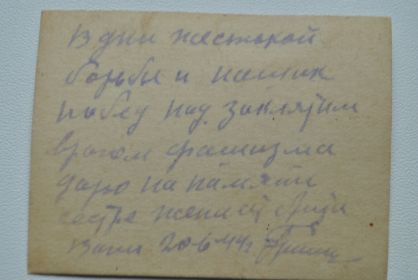 В дни жестокой
борьбы и наших
побед над заклятым
врагом фашизма
дарю на память
сестре жени от
Вани 20 6 44